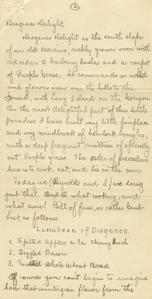 2
Diogenes Delight.
Diogenes Delight is the south slope
of an old moraine, richly grown over with
red cedar & barberry bushes and a carpet
of Purple Grass. It commands a wild
and glorious view over the hills to the
Sound, with Long Island on the horizon
In the most delightful part of this little
paradise I have built my little fireplace
and my windbreak of hemlock boughs,
with a deep fragrant mattress of
cut Purple Grass. The order of procedure
here is cook, eat, and lie in the sun.
Today Reynolds and I are
just that. And what cooking, and
what sun! Bill of fare,
as follows
Luncheon of Diogenes
1. Spitted Apples a la cherry bark
2. Sizzled Bacon
3. Toasted Whole Wheat Bread
Of course you can't begin to imagine
how that wintergreen flavor from the